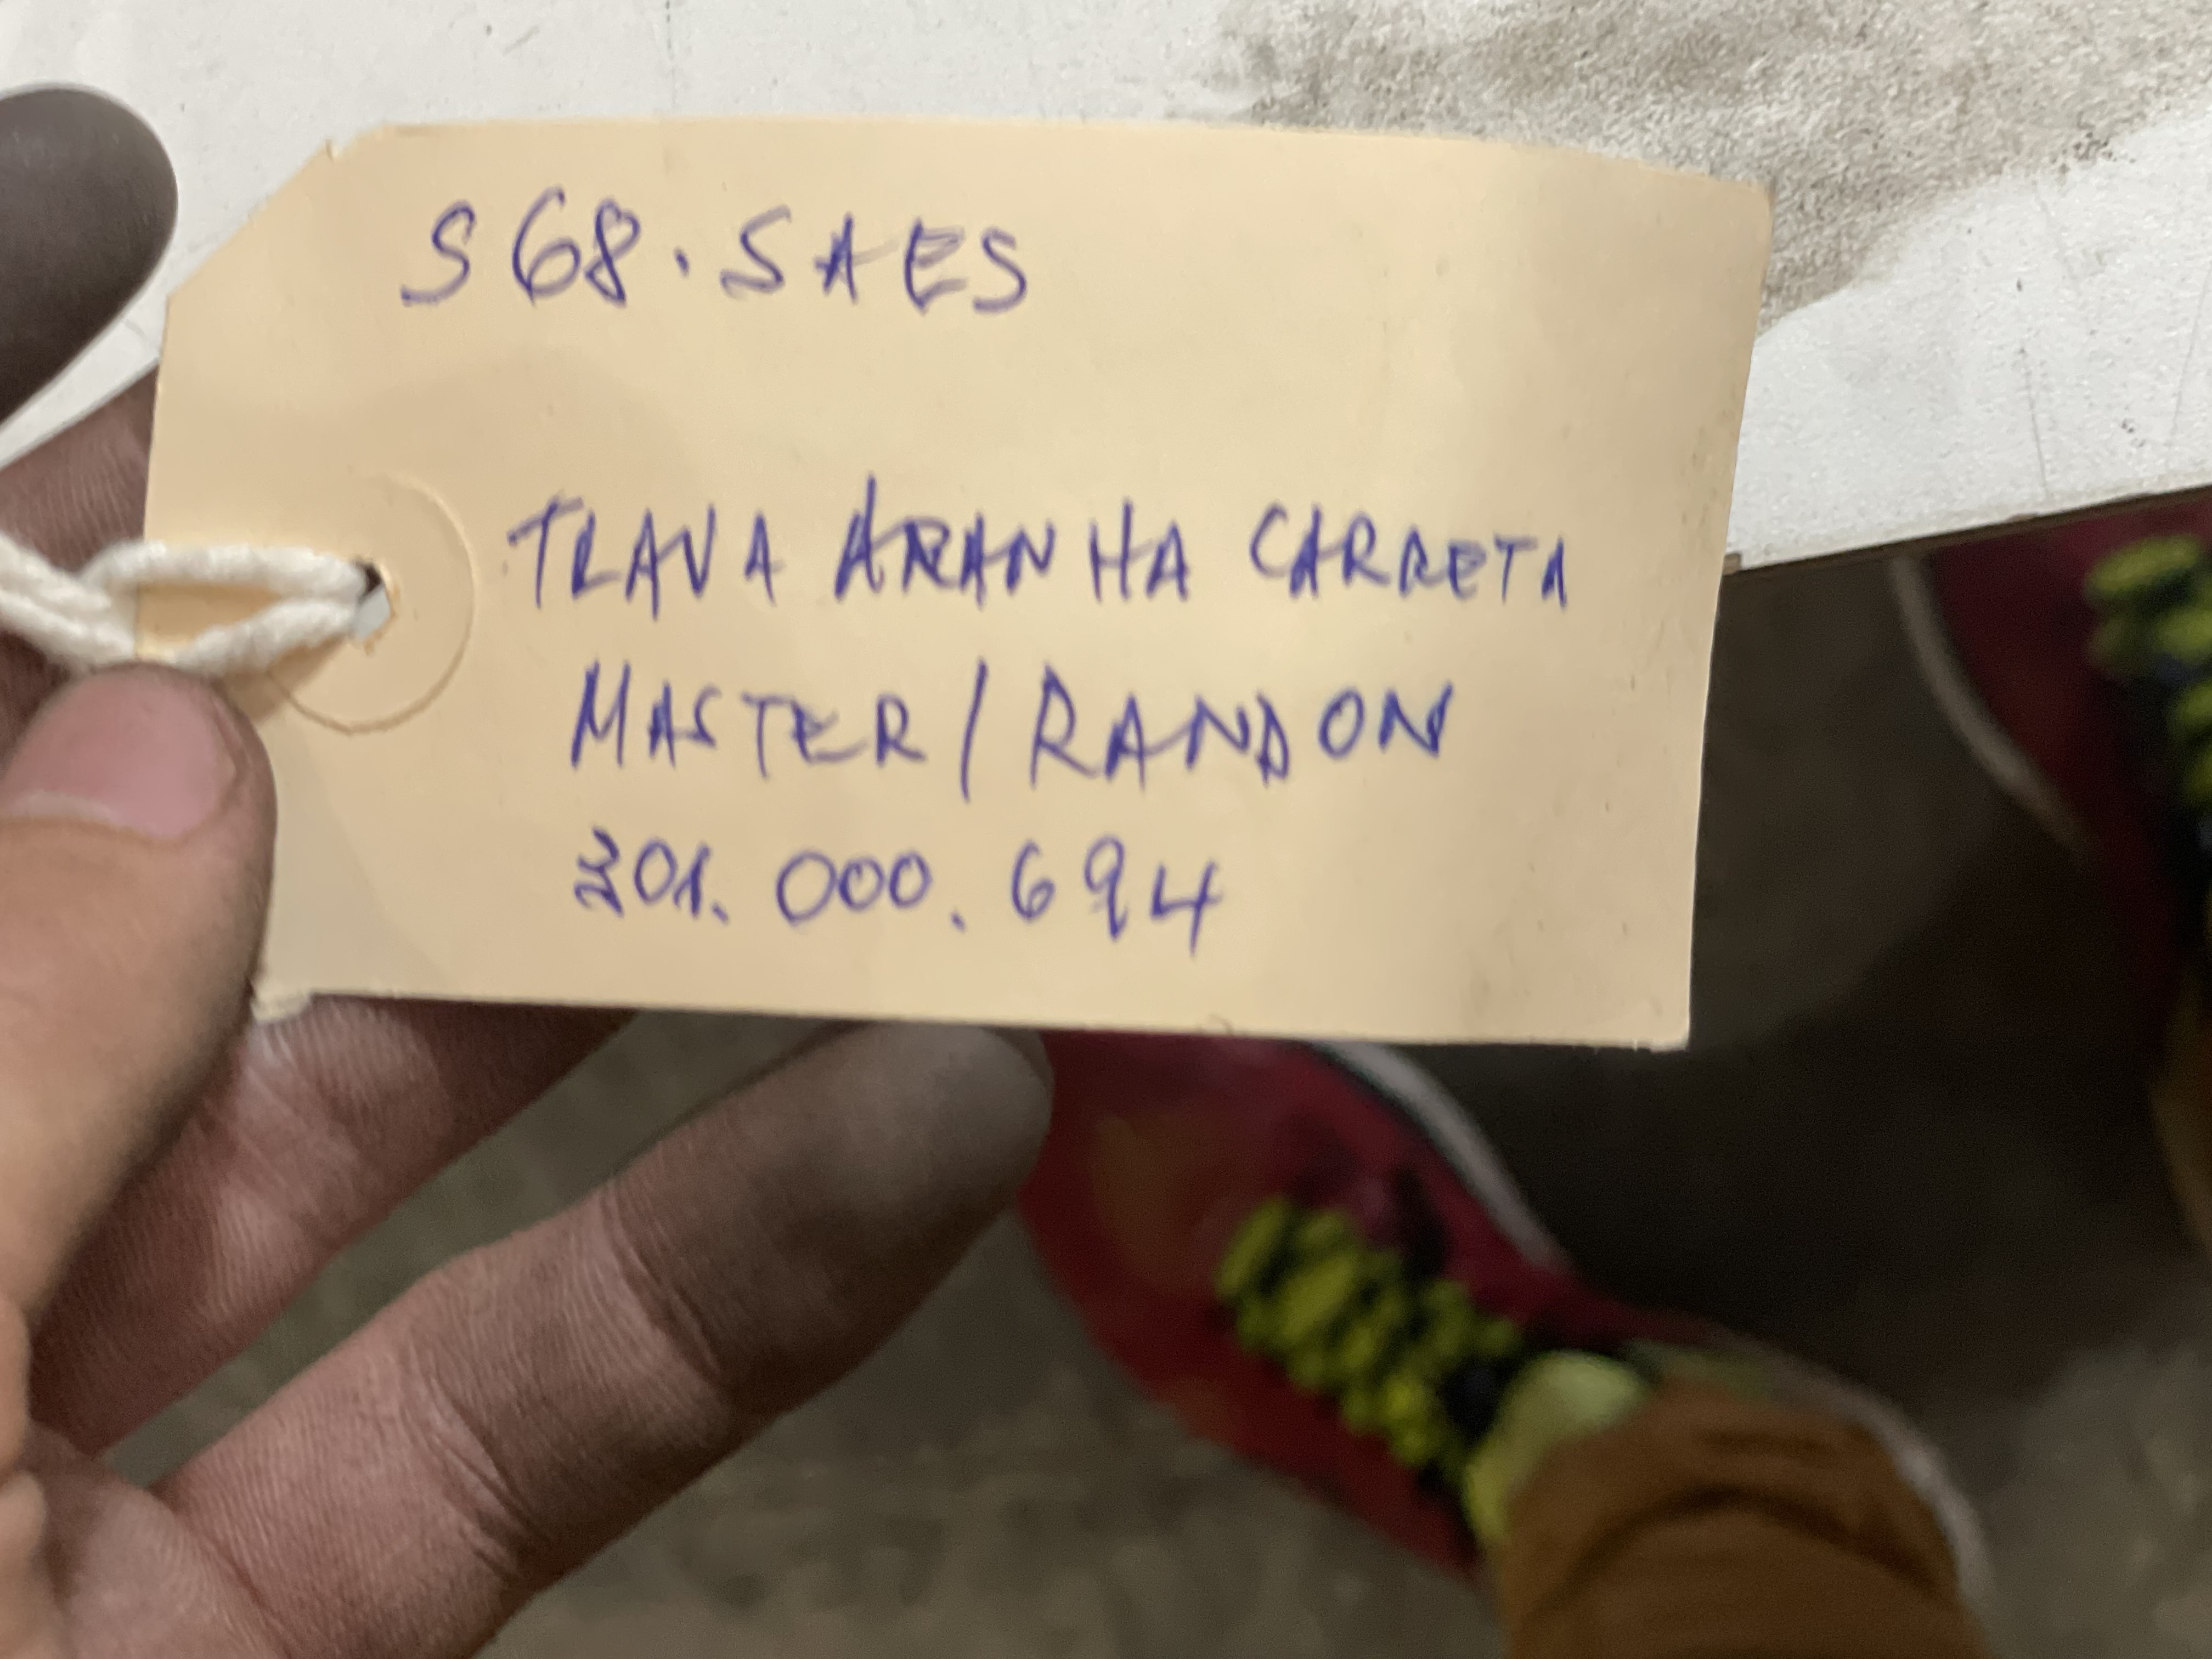 S68.SAES
TRAVA ARANHA CARRETA
MASTER / RANDON
201.000.694